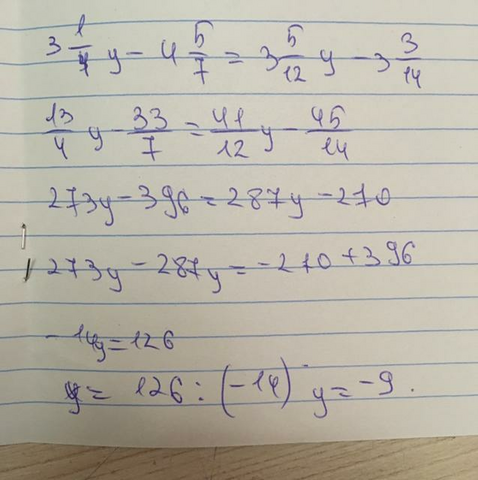 3 1/4 y - 4 5/7 = 3 5/12 y - 3 3/14
13/4 y - 33/7 = 41/12 y - 45/14
273y - 396 = 287y - 270
273y - 287y = -270 + 396
-14y = 126
y = 126 : (-14) y = -9.